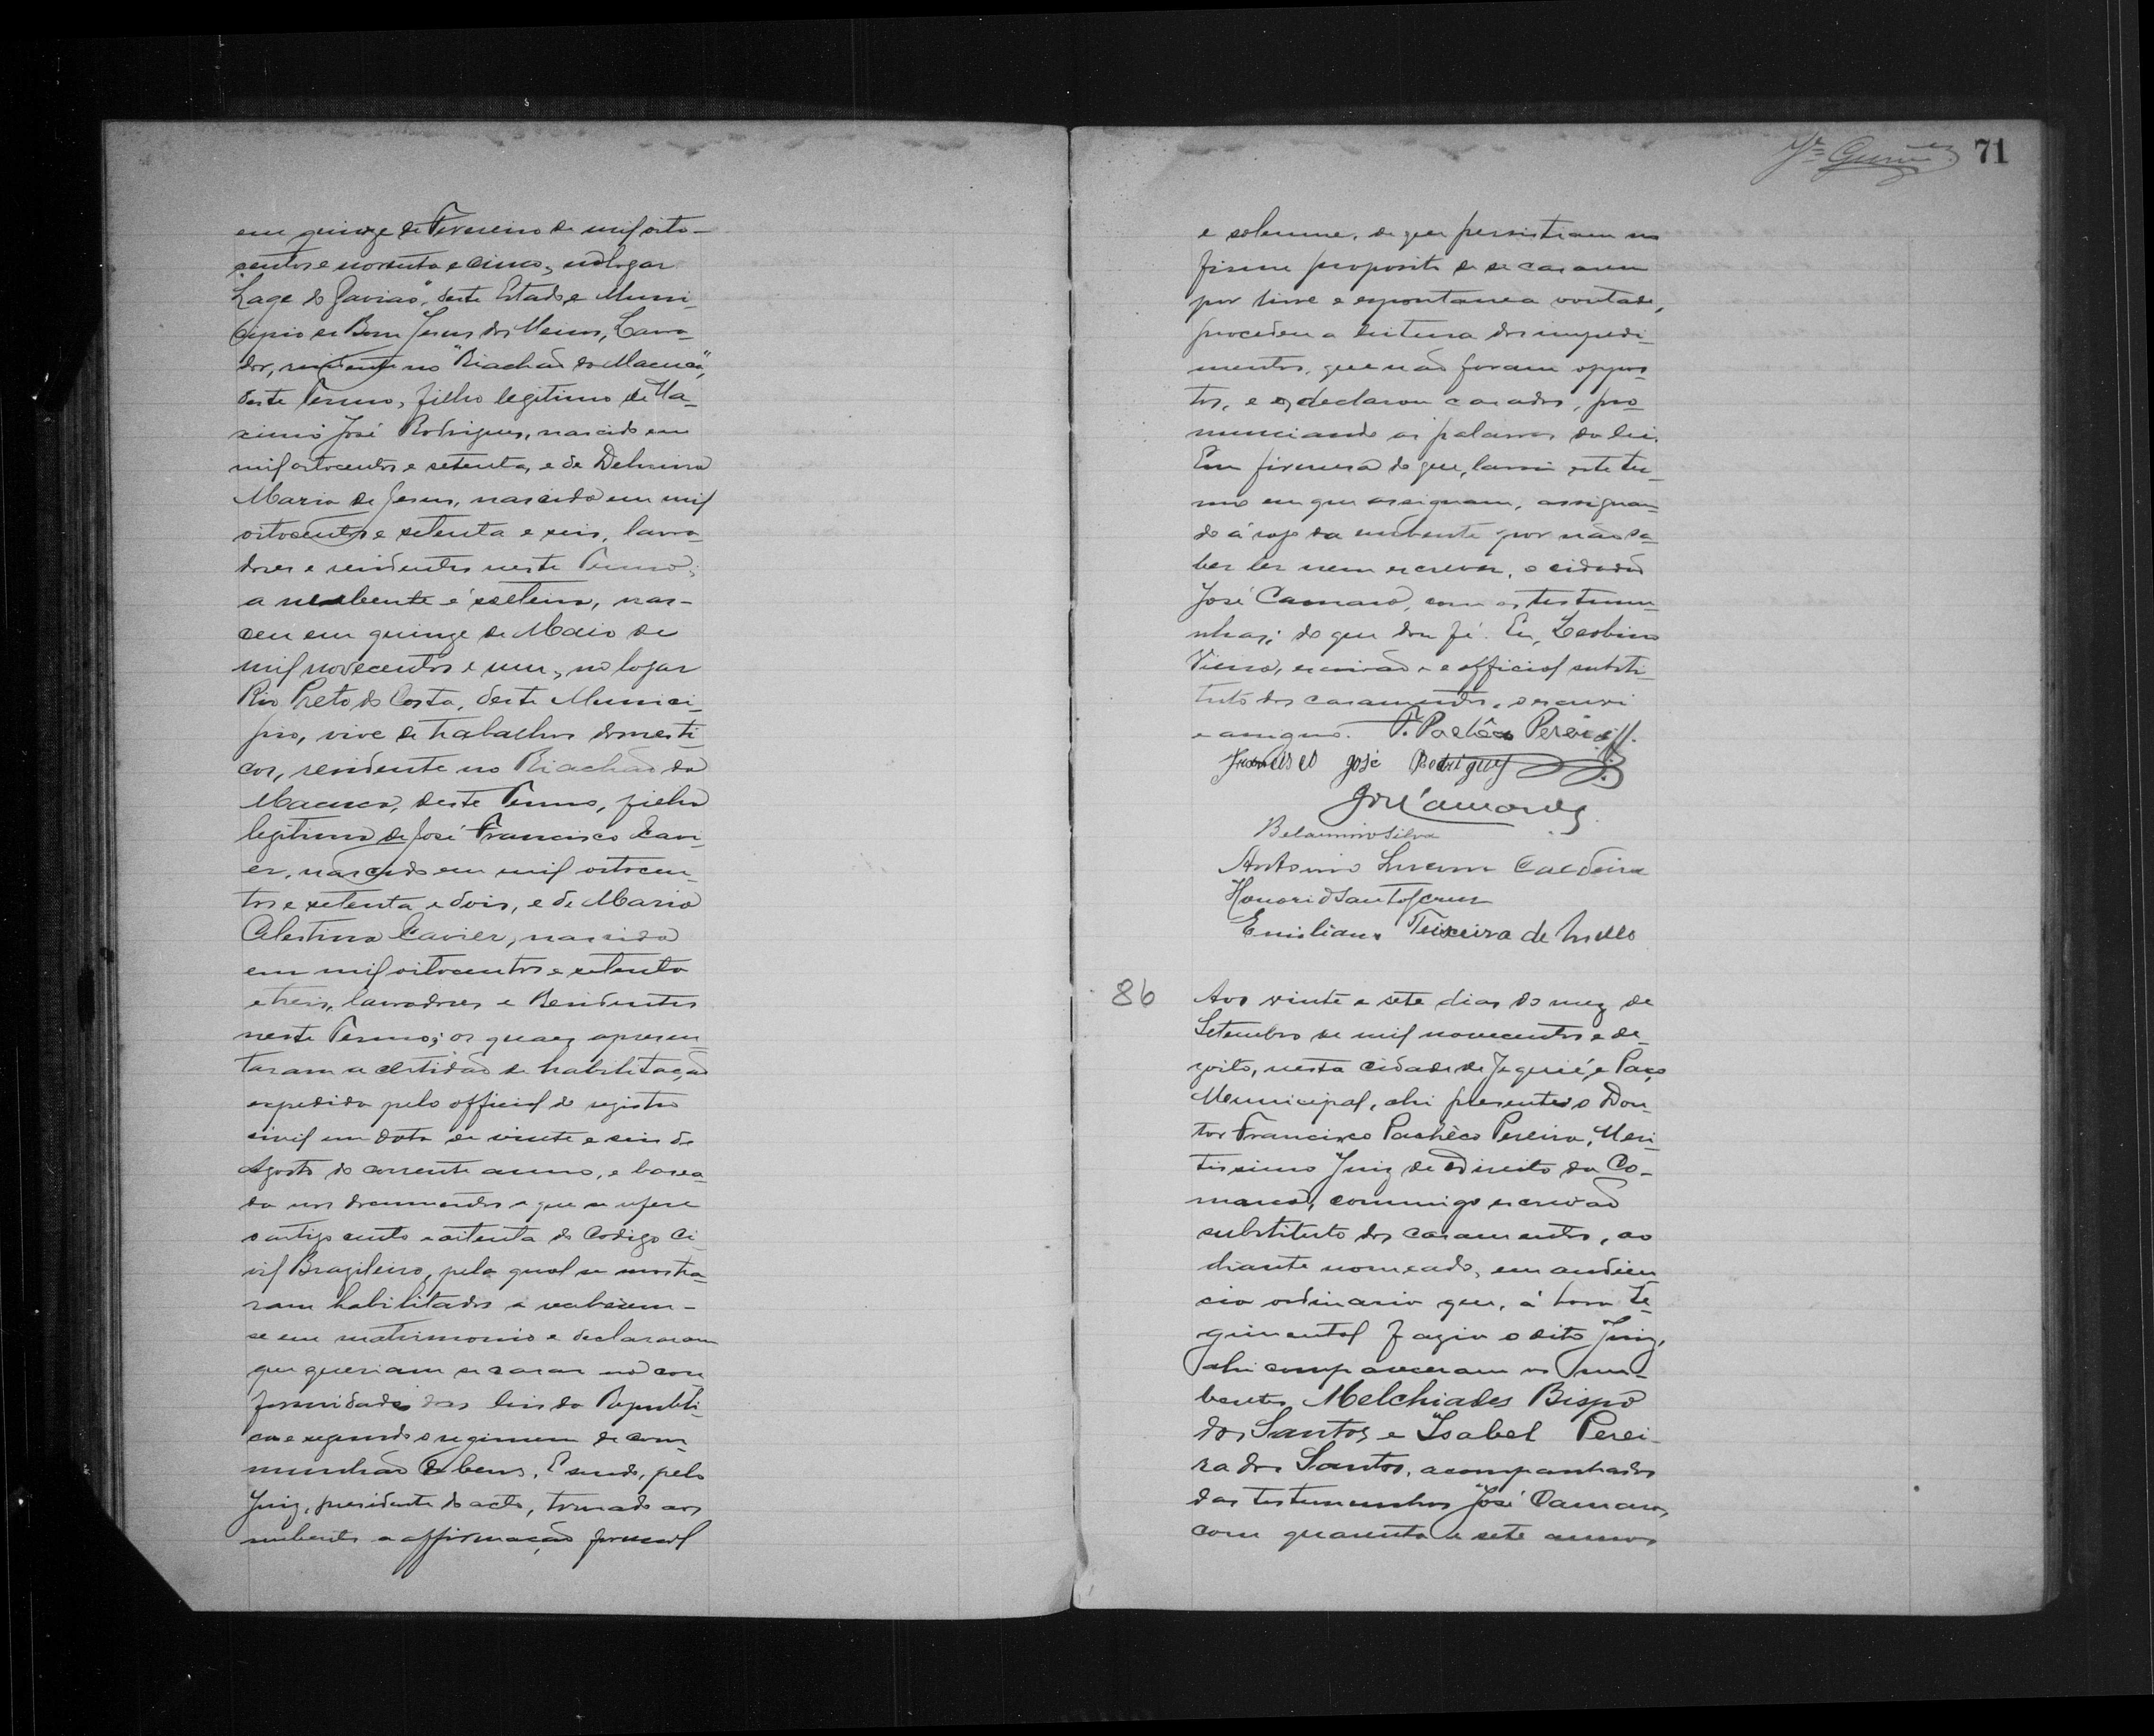 em quinze de Fevereiro de mil oito-
centos e noventa e cinco, no logar
"Lage do Gavião", deste Estado e Muni-
cipio de Bom Jesus dos Meiras, Lavra-
dor, residente no "Riachão do Macuca",
deste Termo, filho legitimo de Ma-
ximo José Rodrigues, nascido em
mil oitocentos e setenta, e de Delmira
Maria de Jesus, nascida em mil
oitocentos e setenta e seis, lavra-
dores e residentes neste Termo;
a nubente é solteira, nas-
ceu em quinze de Maio de
mil novecentos e um, no logar
Rio Preto do Costa, deste Munici-
pio, vive de trabalhos domesti-
cos, residente no Riachão do
Macuca, deste Termo, filha
legitima de José Francisco Xavi-
er, nascido em mil oitocen-
tos e setenta e dois, e de Maria
Celestina Xavier, nascida
em mil oitocentos e setenta
e treis, lavradores e Residentes
neste Termo; os quaes apresen-
taram a certidão de habilitação
expedida pelo official do registro
civil em data de vinte e seis de
Agosto do corrente anno, e basea-
da nos documentos a que se refere
o artigo cento e oitenta do Codigo Ci-
vil Brazileiro, pela qual se mostra-
ram habilitados a receberem-
se em matrimonio e declararam
que queriam se casar na con-
formidade das leis da Republi-
ca e segundo o regimen de com-
munhão de bens. E sendo, pelo
Juiz, presidente do acto, tomado aos
nubentes a affirmação formal
71
e solemne, de que persistiam no
firme proposito de se casarem
por livre e espontanea vontade,
procedeu a leitura dos impedi-
mentos, que não foram oppos-
tos, e os declarou casados, pro-
nunciando as palavras da lei.
Em firmesa do que, lavrei este ter-
mo em que assignam, assignan-
do á rogo da nubente por não sa-
ber ler nem escrever, o cidadão
José Camara, com as testemu-
nhas; do que dou fé. Eu, Leobino
Vieira, escrivão e official substi-
tuto dos casamentos, o escrevi
e assigno. F. Pachêco Pereira
Francisco José Rodrigues
José Camara
Belarmino Silva
Antonio Lucena Caldeira
Honorio Santa Cruz
Emiliano Teixeira de Mello
86
Aos vinte e sete dias do mez de
Setembro de mil novecentos e de-
zoito, nesta cidade de Jequié, e Paço
Municipal, ahi presente o Dou-
tor Francisco Pachêco Pereira, Meri-
tissimo Juiz de Direito da Co-
marca, commigo escrivão
substituto dos casamentos, ao
diante nomeado, em audien-
cia ordinaria que, á hora re-
gimental fazia o dito Juiz,
ahi compareceram os nu-
bentes Melchiades Bispo
dos Santos e Isabel Perei-
ra dos Santos, acompanhados
das testemunhas José Camara,
com quarenta e sete annos